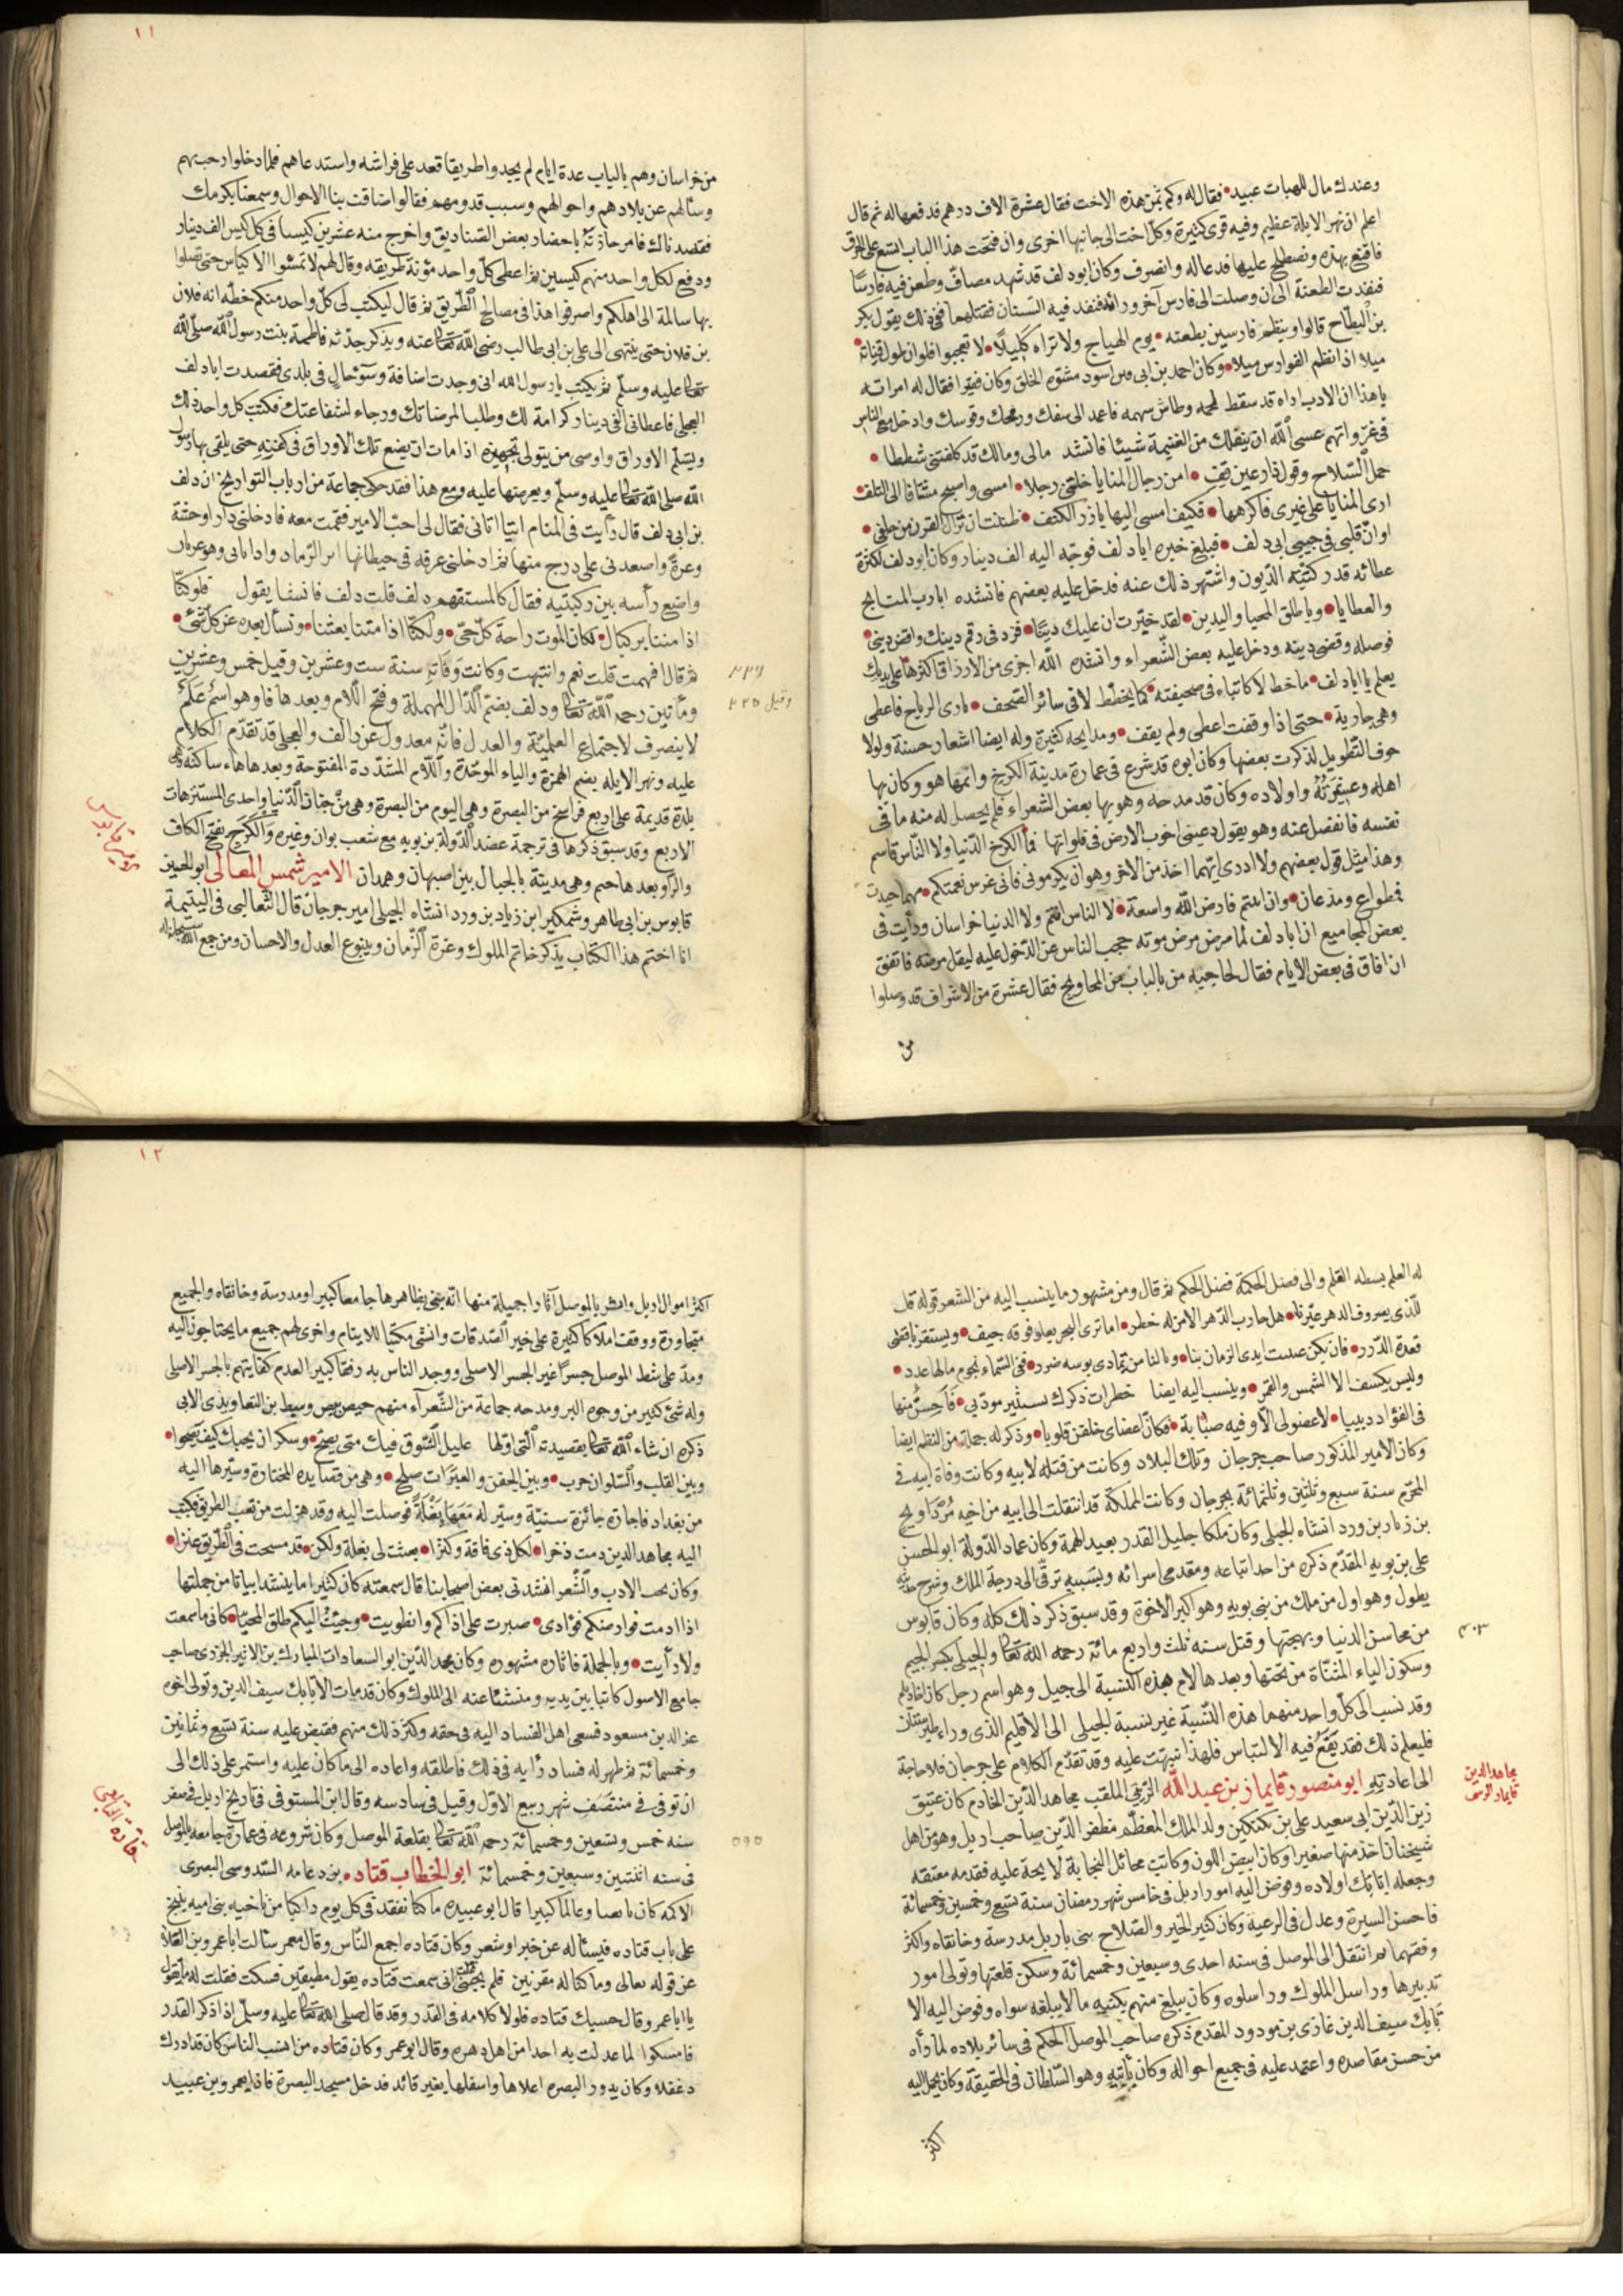 وعندك مال للهبات عبيد • فقال له وكم ثمن هذه الاخت فقال عشرة الاف درهم فدفعها له ثم قال
اعلم ان نهر الابلة عظيم وفيه قرى كثيرة وكل اخت الى جانبها اخرى وان فتحت هذا الباب اتسع على الخرق
فاقنع بهذه ونصطلح عليها فدعا له وانصرف وكان ابو دلف قد شهد مصاف وطعن فيه فارسا
فنفذت الطعنة الى ان وصلت الى فارس آخر وراءه فنفذ فيه السنان فقتلهما ففي ذلك يقول بكر
بن البطاح قالوا وينظم فارسين بطعنة • يوم الهياج ولا تراه كليلا • لا تعجبوا فلو ان طول قناته •
ميلا اذا نظم الفوارس ميلا • وكان احمد بن ابى اسود مشوّه الخلق وكان فقيرا فقال له امراته
يا هذا ان الادب اداه قد سقط نجمه وطاش سهمه فاعمد الى سفك ورمحك وقوسك وادخل مع الناس
فى غزواتهم عسى الله ان ينفلك من الغنيمة شيئا فانشد مالى ومالك قد كلفتنى شططا •
حمل السلاح وقول الدارعين قف • امن رجال المنايا خلتنى رجلا • امسى واصبح مشتاقا الى التلف •
ارى المنايا على غيرى فاكرهها • فكيف امسى اليها بارز الكتف • ظننت ان نزال القرن من خلقى •
اوان قلبى فى جنبى ابى دلف • فبلغ خبره ابا دلف فوجه اليه الف دينار وكان ابو دلف لكثرة
عطائه قد ركبته الديون واشتهر ذلك عنه فدخل عليه بعضهم فانشده ايا رب المنايح
والعطايا • ويا طلق المحيا واليدين • لقد خبّرت ان عليك دينا • فزد فى رقم دينك واقض دينى •
فوصله وقضى دينه ودخل عليه بعض الشعراء وانشده الله اجرى من الارزاق اكثرها على يديك
يعلم يا ابا دلف • ما خط لا كاتباه فى صحيفته • كما يخطط لا فى سائر الصحف • بارى الرياح فاعطى
وهى جارية • حتى اذا وقفت اعطى ولم يقف • ومدايحه كثيرة وله ايضا اشعار حسنة ولولا
خوف التطويل لذكرت بعضها وكان ابوه قد شرع فى عمارة مدينة الكرج واتمها هو وكان بها
اهله وعشيرته واولاده وكان قد مدحه وهو بها بعض الشعراء فلم يحصل له منه ما فى
نفسه فانفصل عنه وهو يقول دعينى اجوب الارض فى فلواتها فما الكرج الدنيا ولا الناس قاسم
وهذا مثل قول بعضهم ولا ادرى ايهما اخذ من الاخر وهو ان يكرمونى فانى غرس نعمتكم • مهما حييت
فمطواع ومذعان • وان ابيتم فارض الله واسعة • لا الناس انتم ولا الدنيا خراسان ورأيت فى
بعض المجاميع ان ابا دلف لما مرض مرض موته حجب الناس عن الدخول عليه ليقل مرضه فاتفق
ان افاق فى بعض الايام فقال لحاجبه من بالباب من المحاويج فقال عشرة من الاشراف قد وصلوا
من
١١
من خراسان وهم بالباب عدة ايام لم يجدوا طريقا فقعد على فراشه واستدعاهم فلما دخلوا رحب بهم
وسألهم عن بلادهم واحوالهم وسبب قدومهم فقالوا ضاقت بنا الاحوال وسمعنا بكرمك
فقصدناك فامر خازنه باحضار بعض الصناديق واخرج منه عشرين كيسا فى كل كيس الف دينار
ودفع لكل واحد منهم كيسين ثم اعطى كل واحد مؤنة طريقه وقال لهم لا تمسوا الاكياس حتى تصلوا
بها سالمة الى اهلكم واصرفوا هذا فى مصالح الطريق ثم قال ليكتب لى كل واحد منكم خطه انه فلان
بن فلان حتى ينتهى الى على بن ابى طالب رضى الله تعالى عنه ويذكر جدته فاطمة بنت رسول الله صلى الله
تعالى عليه وسلم ثم يكتب يا رسول الله انى وجدت اضاقة وسوء حال فى بلدى فقصدت ابا دلف
العجلى فاعطانى الفى دينار كرامة لك وطلبا لمرضاتك ورجاء لشفاعتك فكتب كل واحد ذلك
وتسلم الاوراق واوصى من يتولى تجهيزه اذا مات ان يضع تلك الاوراق فى كفنه حتى يلقى بها رسول
الله صلى الله تعالى عليه وسلم ويعرضها عليه ومع هذا فقد حكى جماعة من ارباب التواريخ ان دلف
بن ابى دلف قال رأيت فى المنام آتيا اتانى فقال لى اجب الامير فقمت معه فادخلنى دارا وحشة
وعرة واصعدنى على درج منها ثم ادخلنى غرفه فى حيطانها اثر الرماد واذا بابى وهو عريان
واضع رأسه بين ركبتيه فقال كالمستفهم دلف قلت دلف فانشأ يقول فلو كنا
اذا متنا تركنا • لكان الموت راحة كل حى • ولكنا اذا متنا بعثنا • ونسأل بعده عن كل شئ •
ثم قال افهمت قلت نعم وانتبهت وكانت وفاته سنة ست وعشرين وقيل خمس وعشرين
ومأتين رحمه الله تعالى ودلف بضم الدال المهملة وفتح اللام وبعدها فا وهو اسم علم
لا ينصرف لاجتماع العلمية والعدل فانه معدول عن دالف والعجلى قد تقدم الكلام
عليه ونهر الابله بضم الهمزة والباء الموحدة واللام المشددة المفتوحة وبعدها هاء ساكنه هى
بلدة قديمة على اربع فراسخ من البصرة وهى اليوم من البصرة وهى من جنان الدنيا واحدى المستنزهات
الاربع وقد سبق ذكرها فى ترجمة عضد الدولة بن بويه مع شعب بوان وغيره والكرج بفتح الكاف
والراو بعدها جيم وهى مدينة بالجبال بين اصبهان وهمدان الامير شمس المعالى ابو الحسن
قابوس بن ابى طاهر وشمكير ابن زياد بن وردانشاه الجيلى امير جرجان قال الثعالبى فى اليتيمة
انا اختم هذا الكتاب بذكر خاتم الملوك وغرة الزمان وينبوع العدل والاحسان ومن جمع الله سبحانه
٢٢٦
وقيل ٢٢٥
له العلم بسطه القلم والى فضل الحكمة فضل الحكم ثم قال ومن مشهور ما ينسب اليه من الشعر قوله قل
للذى بصروف الدهر عيّرنا • هل حارب الدهر الا من له خطر • اما ترى البحر يعلو فوقه جيف • ويستقر باقصى
قعره الدرر • فان تكن عبثت ايدى الزمان بنا • ونالنا من تمادى بوسه ضرر • ففى السماء نجوم مالها عدد •
وليس يكسف الا الشمس والقمر • وينسب اليه ايضا خطرات ذكرك تستثير مودتى • فاحس منها
فى الفؤاد دبيبا • لا عضو لى الا وفيه صبابة • فكان اعضاى خلقن قلوبا • وذكر له جملة من النظم ايضا
وكان الامير المذكور صاحب جرجان وتلك البلاد وكانت من قبله لابيه وكانت وفاة ابيه فى
المحرم سنة سبع وثلثين وثلثمائة بجرجان وكانت المملكة قد انتقلت الى ابيه من اخيه مرداويج
بن زيار بن وردانشاه الجيلى وكان ملكا جليل القدر بعيد الهمة وكان عماد الدولة ابو الحسن
على بن بويه المقدم ذكره من احد اتباعه ومقدمى امرائه وبسببه ترقى الى درجة الملك وشرح حديثه
يطول وهو اول من ملك من بنى بويه وهو اكبر الاخوة وقد سبق ذكر ذلك كله وكان قابوس
من محاسن الدنيا وبهجتها وقتل سنه ثلث واربع مائة رحمه الله تعالى والجيلى بكسر الجيم
وسكون الياء المثناة من تحتها وبعدها لام هذه النسبة الى جيل وهو اسم رجل كان اخا ديلم
وقد نسب الى كل واحد منهما هذه النسبة غير نسبة الجيلى الى الاقليم الذى وراء طبرستان
فليعلم ذلك فقد يقع فيه الالتباس فلهذا نبهت عليه وقد تقدم الكلام على جرجان فلا حاجة
الى اعادته ابو منصور قايماز بن عبد الله الزينى الملقب مجاهد الدين الخادم كان عتيق
زين الدين ابى سعيد على بن بكتكين ولد الملك المعظم مظفر الدين صاحب اربل وهو من اهل
شبختان اخذ منها صغيرا وكان ابيض اللون وكانت مخائل النجابة لايحة عليه فقدمه معتقه
وجعله اتابك اولاده وفوض اليه امور اربل فى خامس شهر رمضان سنة تسع وخمسين وخمسمائة
فاحسن السيرة وعدل فى الرعية وكان كثير الخير والصلاح بنى باربل مدرسة وخانقاه واكثر
وقفهما ثم انتقل الى الموصل فى سنه احدى وسبعين وخمسمائة وسكن قلعتها وتولى امور
تدبيرها وراسل الملوك وراسلوه وكان يبلغ منهم بكتبه ما لا يبلغه سواه وفوض اليه الا
تابك سيف الدين غازى بن مودود المقدم ذكره صاحب الموصل الحكم فى سائر بلاده لما رآه
من حسن مقاصده واعتمد عليه فى جميع احواله وكان نائبه وهو السلطان فى الحقيقة وكان يحمل اليه
اكثر
٤٠٣
مجاهد الدين
قايماز الزينى
١٢
اكثر اموال اربل واثر بالموصل آثارا جميلة منها انه بنى بظاهرها جامعا كبيرا ومدرسة وخانقاه والجميع
متجاورة ووقف املاكا كثيرة على خبز الصدقات وانشى مكتبا للايتام واجرى لهم جميع ما يحتاجون اليه
ومد على شط الموصل جسرا غير الجسر الاصلى ووجد الناس به رفقا كبيرا لعدم كفايتهم بالجسر الاصلى
وله شئ كثير من وجوه البر ومدحه جماعة من الشعرآء منهم حيص بيص وسبط بن التعاويذى الاتى
ذكره ان شاء الله تعالى بقصيدته التى اولها عليل الشوق فيك متى يصح • وسكران بحبك كيف يصحوا •
وبين القلب والسلوان حرب • وبين الجفن والعبرات صلح • وهى من قصايده المختارة وسيرها اليه
من بغداد فاجازه جائزة سنية وسير له معها بغلة فوصلت اليه وقد هزلت من تعب الطريق فكتب
اليه مجاهد الدين دمت ذخرا • لكل ذى فاقة وكنزا • بعثت لى بغلة ولكن • قد مسخت فى الطريق عنزا •
وكان يحب الادب والشعر انشدنى بعض اصحابنا قال سمعته كان كثيرا ما ينشد ابياتا من جملتها
اذا ادمت قوارصكم فؤادى • صبرت على اذاكم وانطويت • وجيئت اليكم طلق المحيا • كانى ما سمعت
ولا رأيت • وبالجملة فاثاره مشهوره وكان مجد الدين ابو السعادات المبارك بن الاثير الجزرى صاحب
جامع الاصول كاتبا بين يديه ومنشئا عنه الى الملوك وكان قد مات الاتابك سيف الدين وتولى اخوه
عز الدين مسعود فسعى اهل الفساد اليه فى حقه وكثر ذلك منهم فقبض عليه سنة تسع وثمانين
وخمسمائة ثم ظهر له فساد رأيه فى ذلك فاطلقه واعاده الى ما كان عليه واستمر على ذلك الى
ان توفى فى منتصف شهر ربيع الاول وقيل فى سادسه وقال ابن المستوفى فى تاريخ اربل فى صفر
سنه خمس وتسعين وخمسمائة رحمه الله تعالى بقلعة الموصل وكان شروعه فى عمارة جامعه بالموصل
فى سنه اثنتين وسبعين وخمسمائة ابو الخطاب قتاده بن دعامه السدوسى البصرى
الاكمه كان تابعيا وعالما كبيرا قال ابو عبيده ما كنا نفقد فى كل يوم راكبا من ناحيه بنى اميه ينيخ
على باب قتاده فيسئاله عن خبر او شعر وكان قتاده اجمع الناس وقال معمر سئالت ابا عمرو بن العلاء
عن قوله تعالى وما كنا له مقرنين فلم يجبنى فقلت انى سمعت قتاده يقول مطيقين فسكت فقلت له ما تقول
يا ابا عمر وقال حسبك قتاده فلولا كلامه فى القدر وقد قال صلى الله تعالى عليه وسلم اذا ذكر القدر
فامسكوا لما عدلت به احدا من اهل دهره وقال ابو عمر وكان قتاده من انسب الناس كان قد ادرك
دغفلا وكان يدور البصره اعلاها واسفلها بغير قائد فدخل مسجد البصرة فاذا بعمرو بن عبيد
٥٩٥